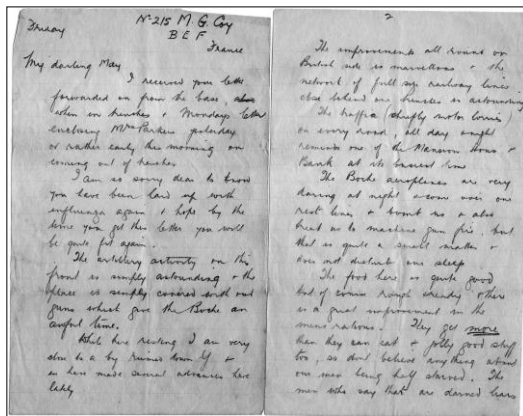 Friday
No 215 M. G. Coy
B E F
France
My darling May
I received your letter
forwarded on from the base,
when in trenches & Mondays letter
enclosing Mrs Parkers yesterday
or rather early this morning on
coming out of trenches
I am so sorry dear to know
you have been laid up with
influenza again & hope by the
time you get this letter you will
be quite fit again.
The artillery activity on this
front is simply astounding & the
place is simply covered with our
guns which give the Boche an
awful time.
While here resting I am very
close to a big ruined town Y &
we have made several advances here
lately
2
The improvements all round on
British side is marvellous & the
network of full size railway lines
close behind our trenches is astounding
The traffic (chiefly motor lorries)
on every road, all day & night
reminds one of the Mansion House &
Bank at its busiest time
The Boche aeroplanes are very
daring at night & come over our
rest lines & bomb us & also
treat us to machine gun fire, but
that is quite a small matter &
does not disturb our sleep
The food here is quite good
but of course rough & ready & there
is a great improvement in the
mens rations. They get more
than they can eat & jolly good stuff
too, so dont believe anything about
our men being half starved. The
men who say that are darned liars